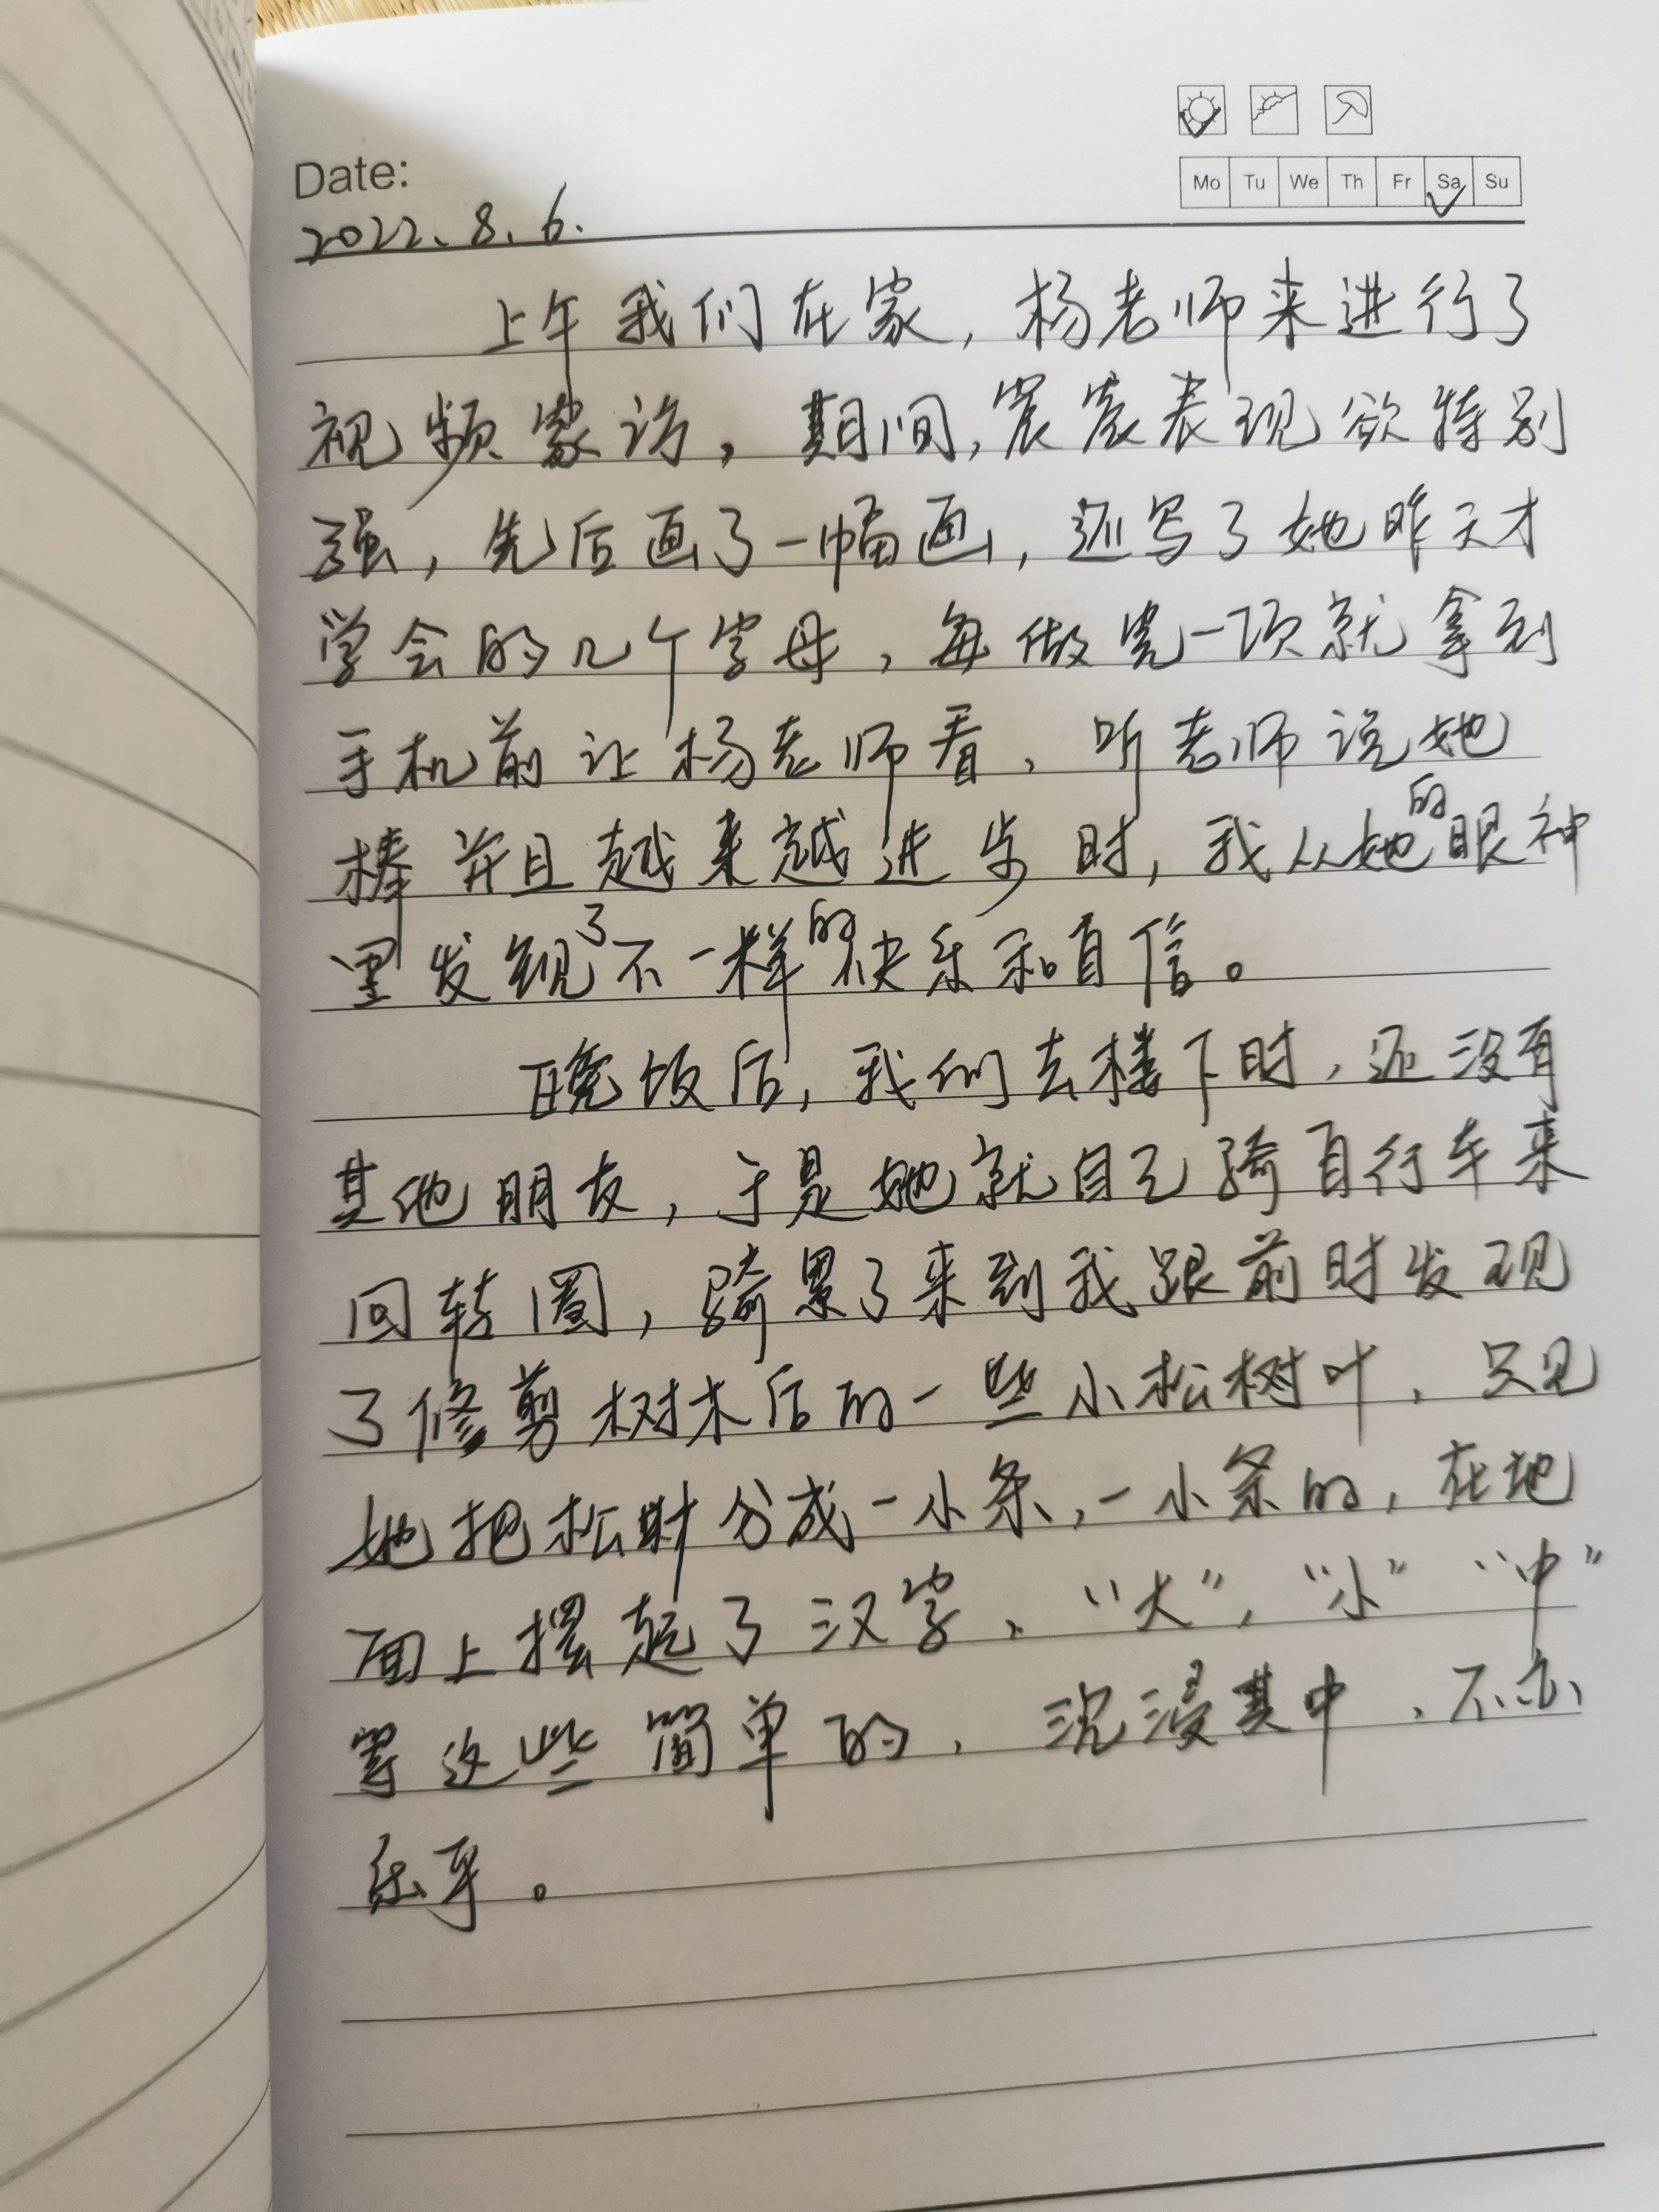 Date:
Mo Tu We Th Fr Sa Su
2022.8.6.
上午我们在家，杨老师来进行了
视频家访，期间，宸宸表现欲特别
强，先后画了一幅画，还写了她昨天才
学会的几个字母，每做完一项就拿到
手机前让杨老师看，听老师说她
棒并且越来越进步时，我从她的眼神
里发现了不一样的快乐和自信。
晚饭后，我们去楼下时，还没有
其他朋友，于是她就自己骑自行车来
回转圈，骑累了来到我跟前时发现
了修剪树木后的一些小松树叶，只见
她把松树分成一小条，一小条的，在地
面上摆起了汉字，“大”，“小”“中”
等这些简单的，沉浸其中，不亦
乐乎。